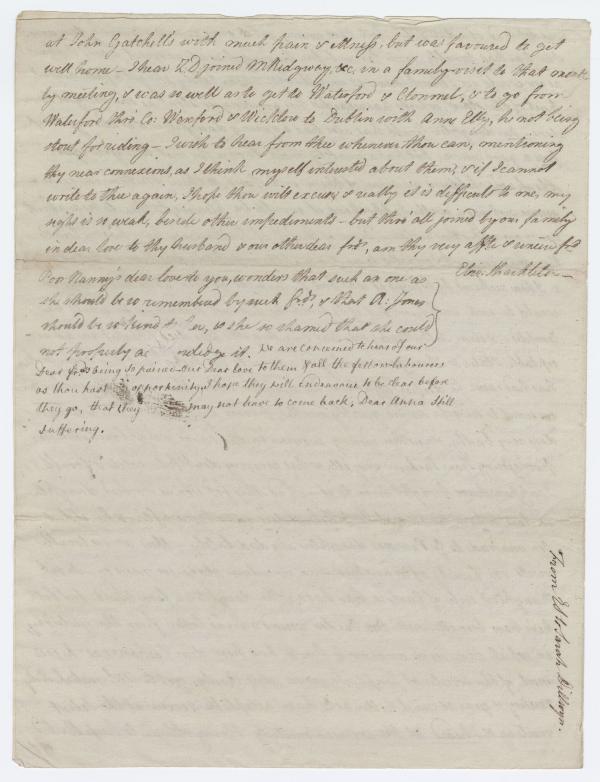 at John Gatchell's with much pain & illness, but was favoured to get
well home – I hear T.D. joined M Ridgway, &c, in a family-visit to that month
ly meeting, & was so well as to get to Waterford & Clonmel, & to go from
Waterford thro' Co: Wexford & Wicklow to Dublin with Anne Elly, he not being
stout for riding – I wish to hear from thee whenever thou can, mentioning
thy near connexions, as I think myself interested about them, & if I cannot
write to thee again, I hope thou wilt excuse, & really it is difficult to me, my
sight is so weak, beside other impediments – but thro' all joined by our family
in dear love to thy husband & our other dear frds, am thy very affte & sincere frd
Eliz: Shackleton
Poor Nanny's dear love to you, wonders that such an one as
she should be so remembered by such frds, & that A: Jones
should be so kind to her, & she so shamed that she could
not properly ac nowledge it. We are concerned to hear of our
Dear frds being so pained – our Dear love to them & all the fellow labourers
as thou hast opportunity, I hope they will endeavour to be clear before
they go, that they may not have to come back, Dear Anna Still
Suffering.
From ES to Sarah Dillwyn.